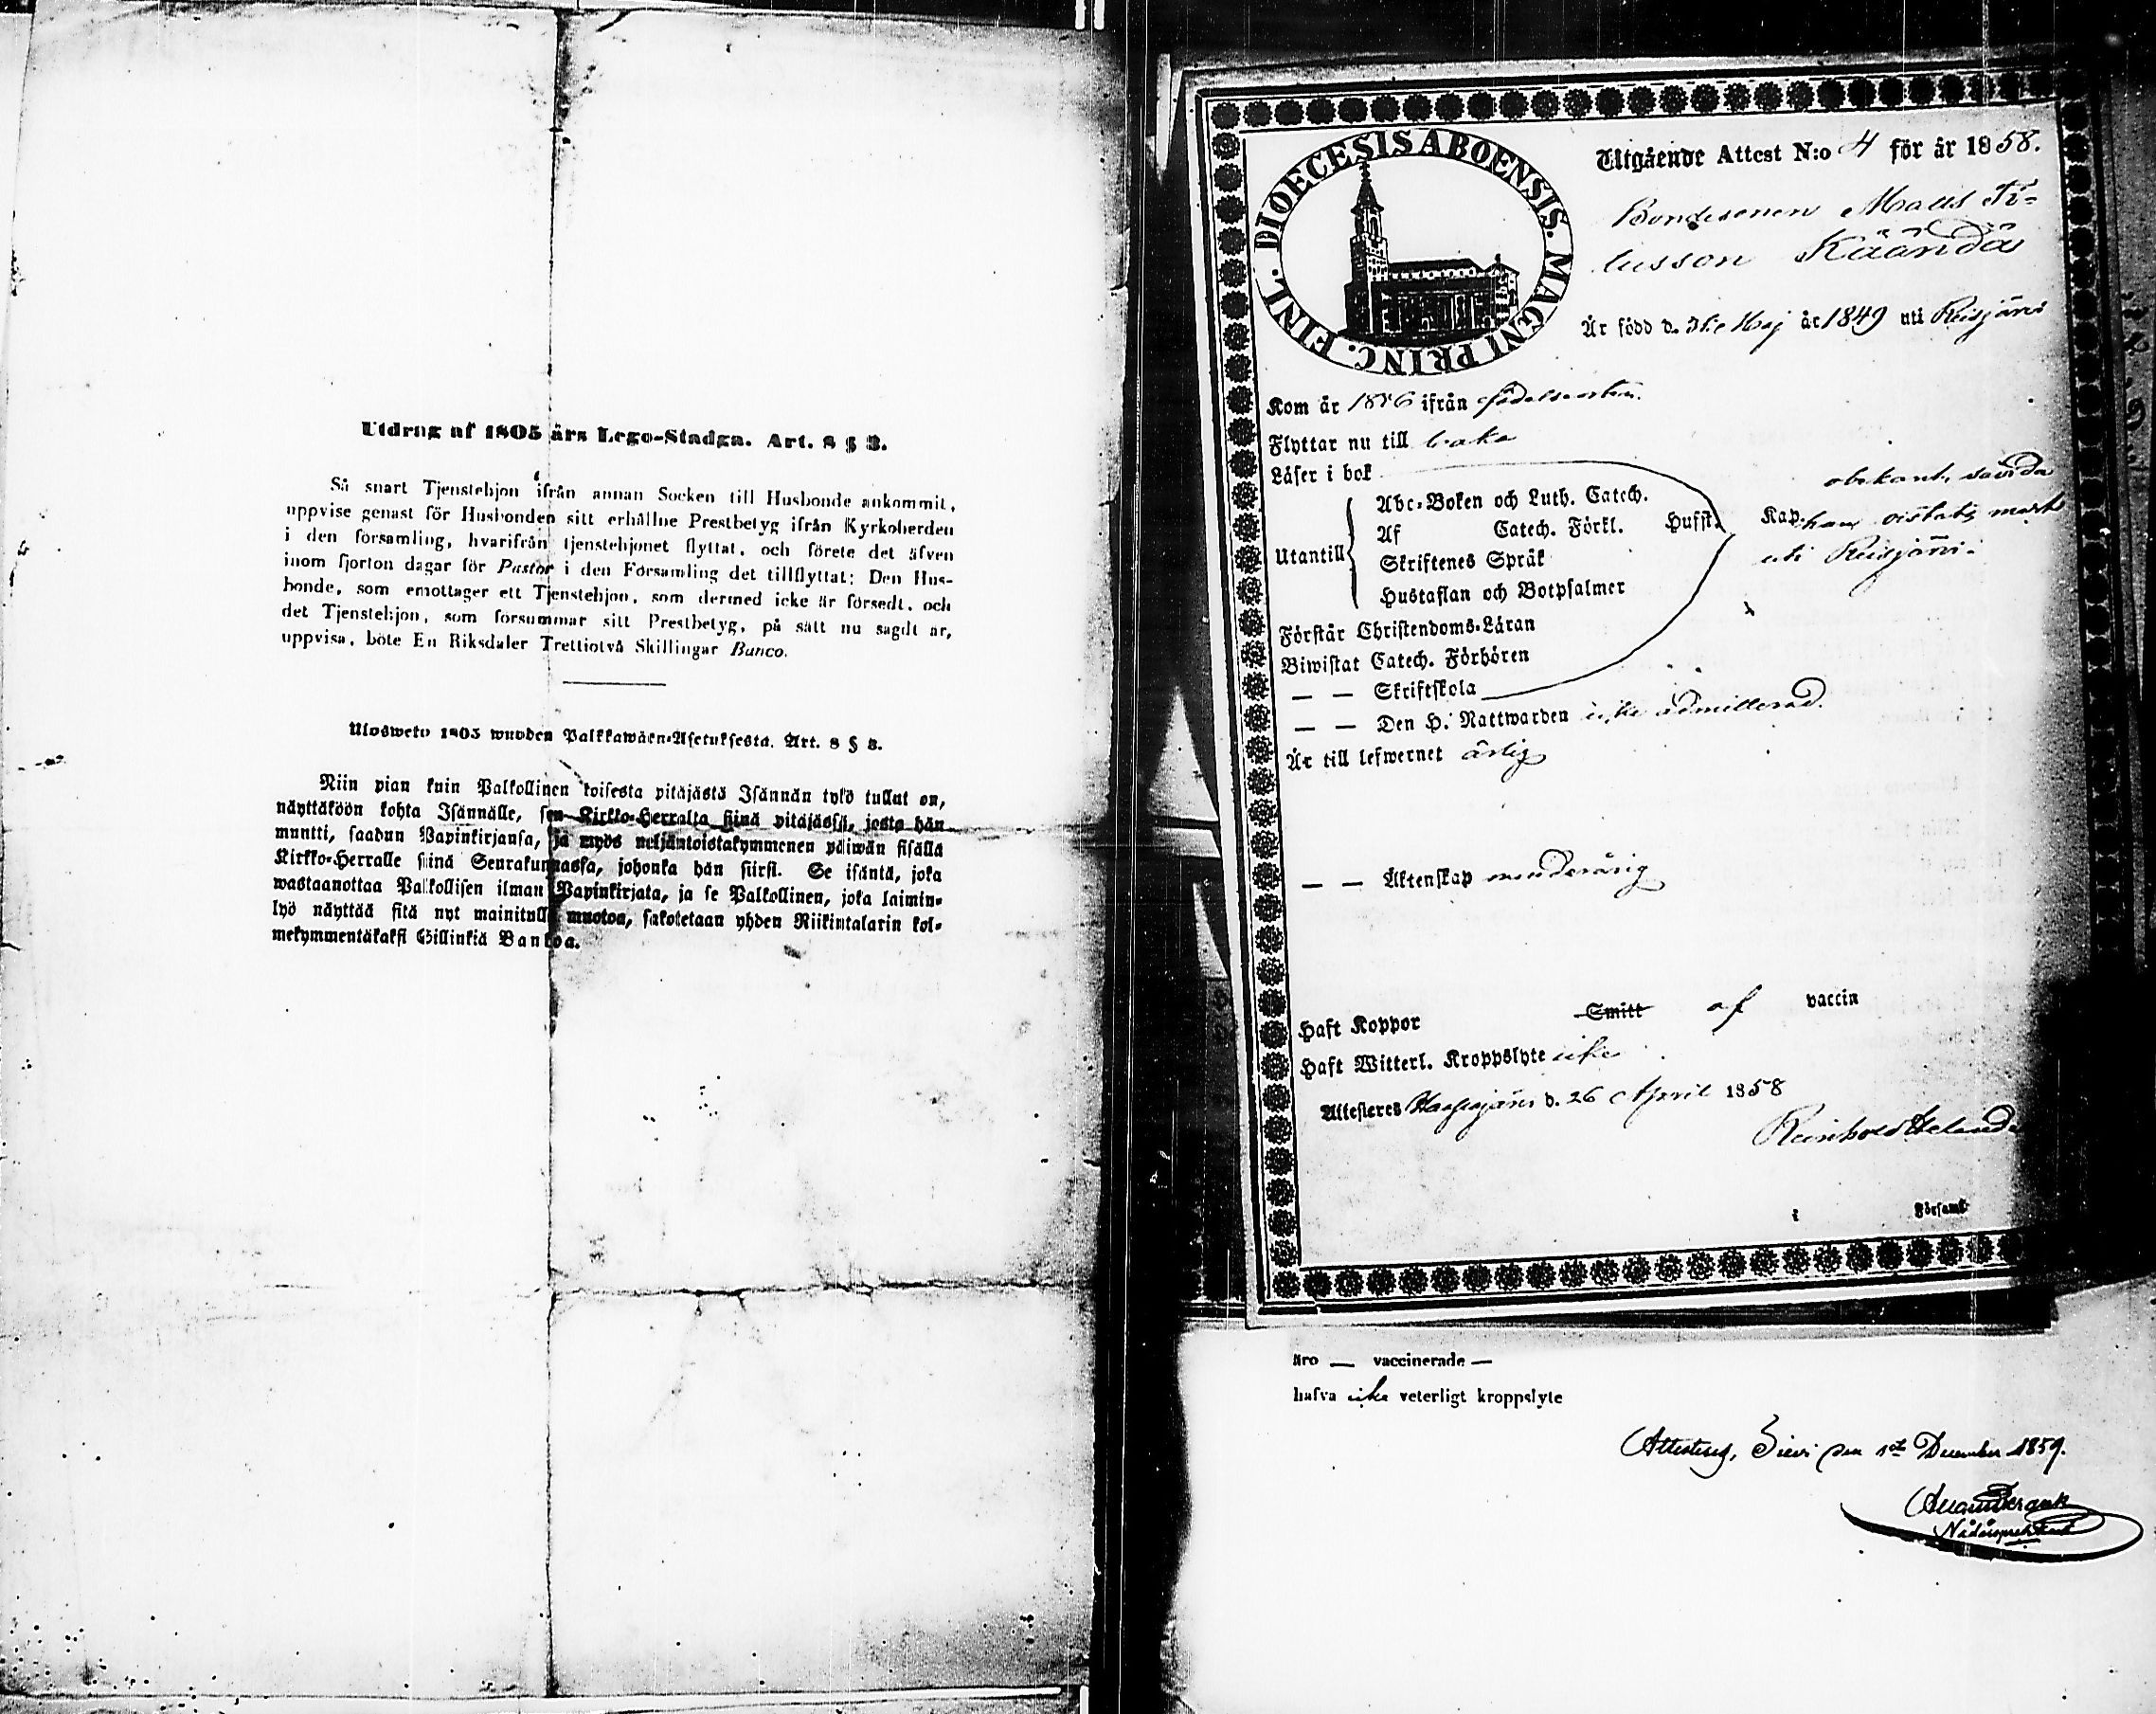 Utdrag af 1805 års Lego-Stadga. Art. 8 § 3.
Så snart Tjenstehjon ifrån annan Socken till Husbonde ankommit,
uppvise genast för Husbonden sitt erhållne Prestbetyg ifrån Kyrkoherden
i den församling, hvarifrån tjenstehjonet flyttat, och förete det äfven
inom fjorton dagar för Pastor i den Församling det tillflyttat; Den Hus-
bonde, som emottager ett Tjenstehjon, som dermed icke är försedt, och
det Tjenstehjon, som försummar sitt Prestbetyg, på sätt nu sagdt är,
uppvisa, böte En Riksdaler Trettiotvå Skillingar Banco.
Ulosweto 1805 wuoden Palkkawäen-Asetuksesta. Art. 8 § 3.
Niin pian kuin Palkollinen toisesta pitäjästä Isännän tykö tullut on,
näyttäköön kohta Isännälle, sen Kirkko-Herralta siinä pitäjässä, josta hän
muutti, saadun Papinkirjansa, ja myös neljäntoistakymmenen päiwän sisällä
Kirkko-Herralle siinä Seurakunnassa, johonka hän siirsi. Se isäntä, joka
wastaanottaa Palkollisen ilman Papinkirjata, ja se Palkollinen, joka laimin-
lyö näyttää sitä nyt mainitulla muotoa, sakotetaan yhden Riikintalarin kol-
mekymmentäkaksi Gillinkiä Bankoa.
DIOECESIS ABOENSIS. MAGNI PRINC. FINL.
Utgående Attest N:o 4 för år 1858.
Bondesonen Matts
Käändä
Är född d. 31 Maj år 1849 uti Reisjärvi
Kom år 1856 ifrån födelseorten.
Flyttar nu till baka
Läser i bok
obekant, sedan
Abc-Boken och Luth. Catech.
Utantill Af Catech. Förkl. Husst. Kap. han vistats mest
Skriftenes Språk uti Reisjärvi.
Hustaflan och Botpsalmer
Förstår Christendoms-Läran
Biwistat Catech. Förhören
— — Skriftskola
— — Den H. Nattwarden icke admitterad.
Är till lefwernet ärlig
— — Äktenskap minderårig
Haft Koppor Smitt af vaccin
Haft Witterl. Kroppslyte icke
Attesteres Haapajärvi d. 26 April 1858
Reinhold Helander
i Församl.
äro — vaccinerade —
hafva icke veterligt kroppslyte
Attesteras, Sievi den 1st December 1859.